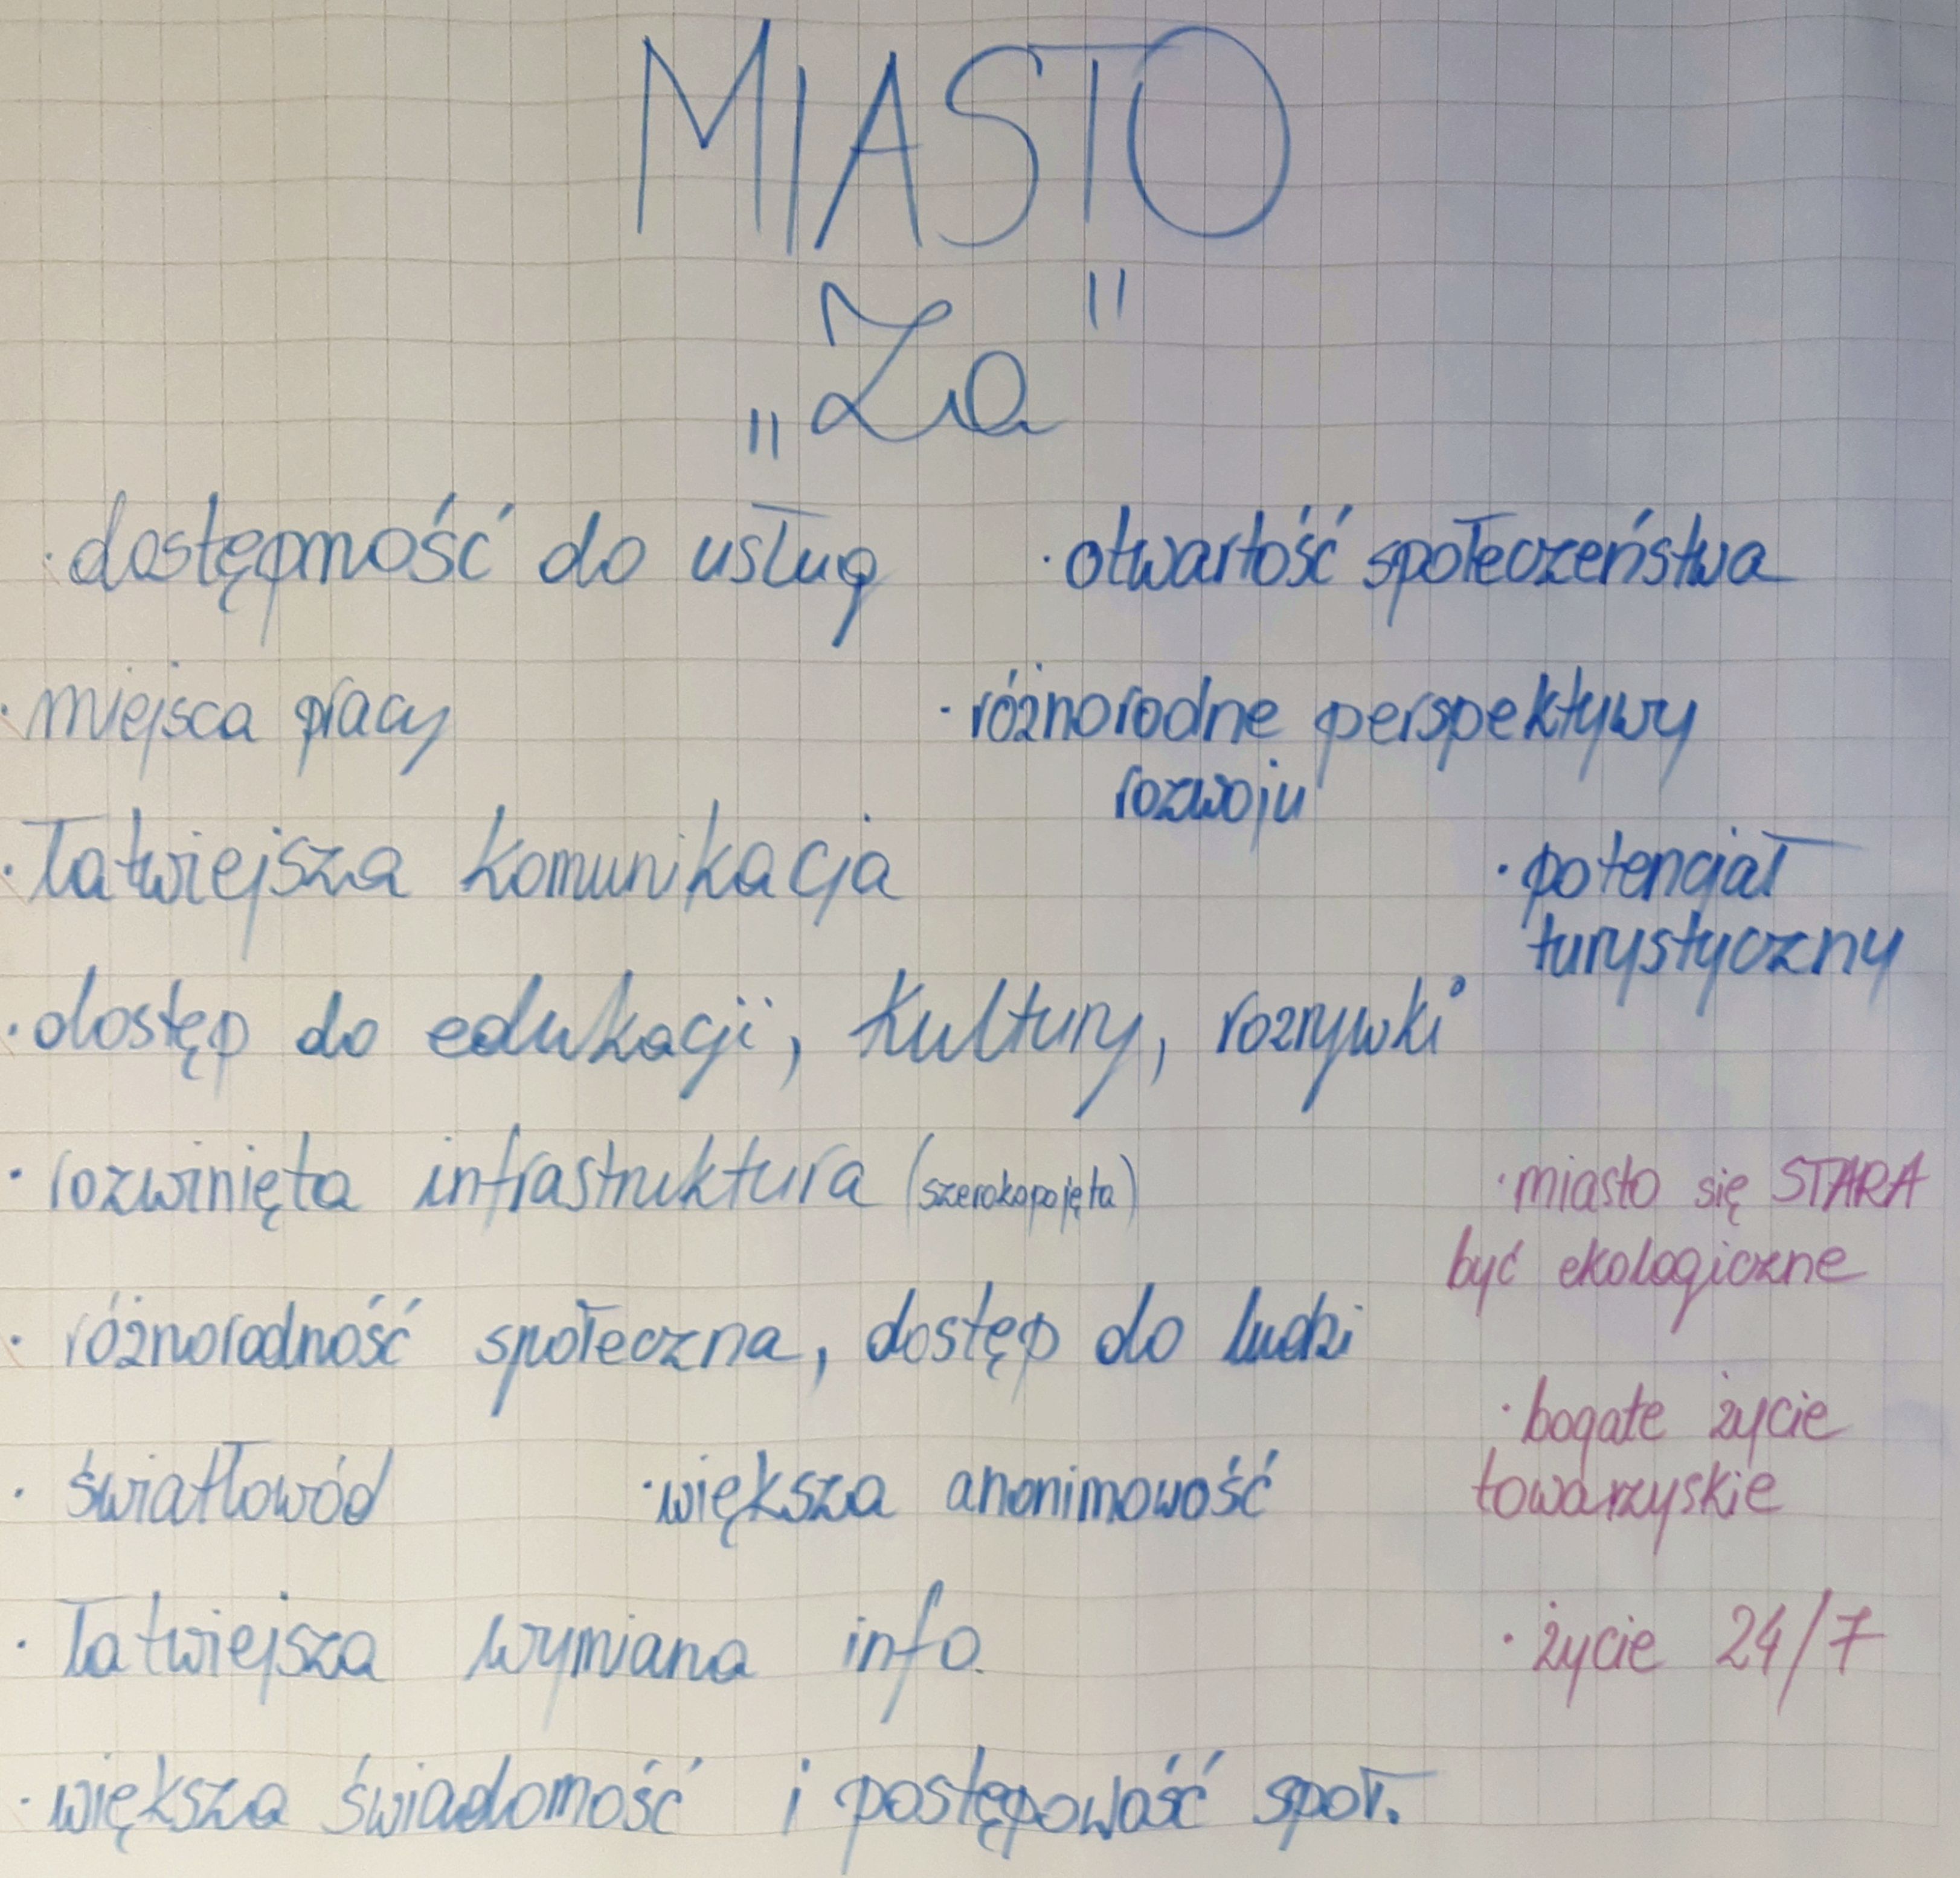 MIASTO
„Za"
· dostępność do usług
· otwartość społeczeństwa
· miejsca pracy
· różnorodne perspektywy
rozwoju
· łatwiejsza komunikacja
· potencjał
turystyczny
· dostęp do edukacji, kultury, rozrywki
· rozwinięta infrastruktura (szerokopojęta)
· miasto się STARA
być ekologiczne
· różnorodność społeczna, dostęp do ludzi
· bogate życie
towarzyskie
· światłowód
· większa anonimowość
· łatwiejsza wymiana info.
· życie 24/7
· większa świadomość i postępowość społ.